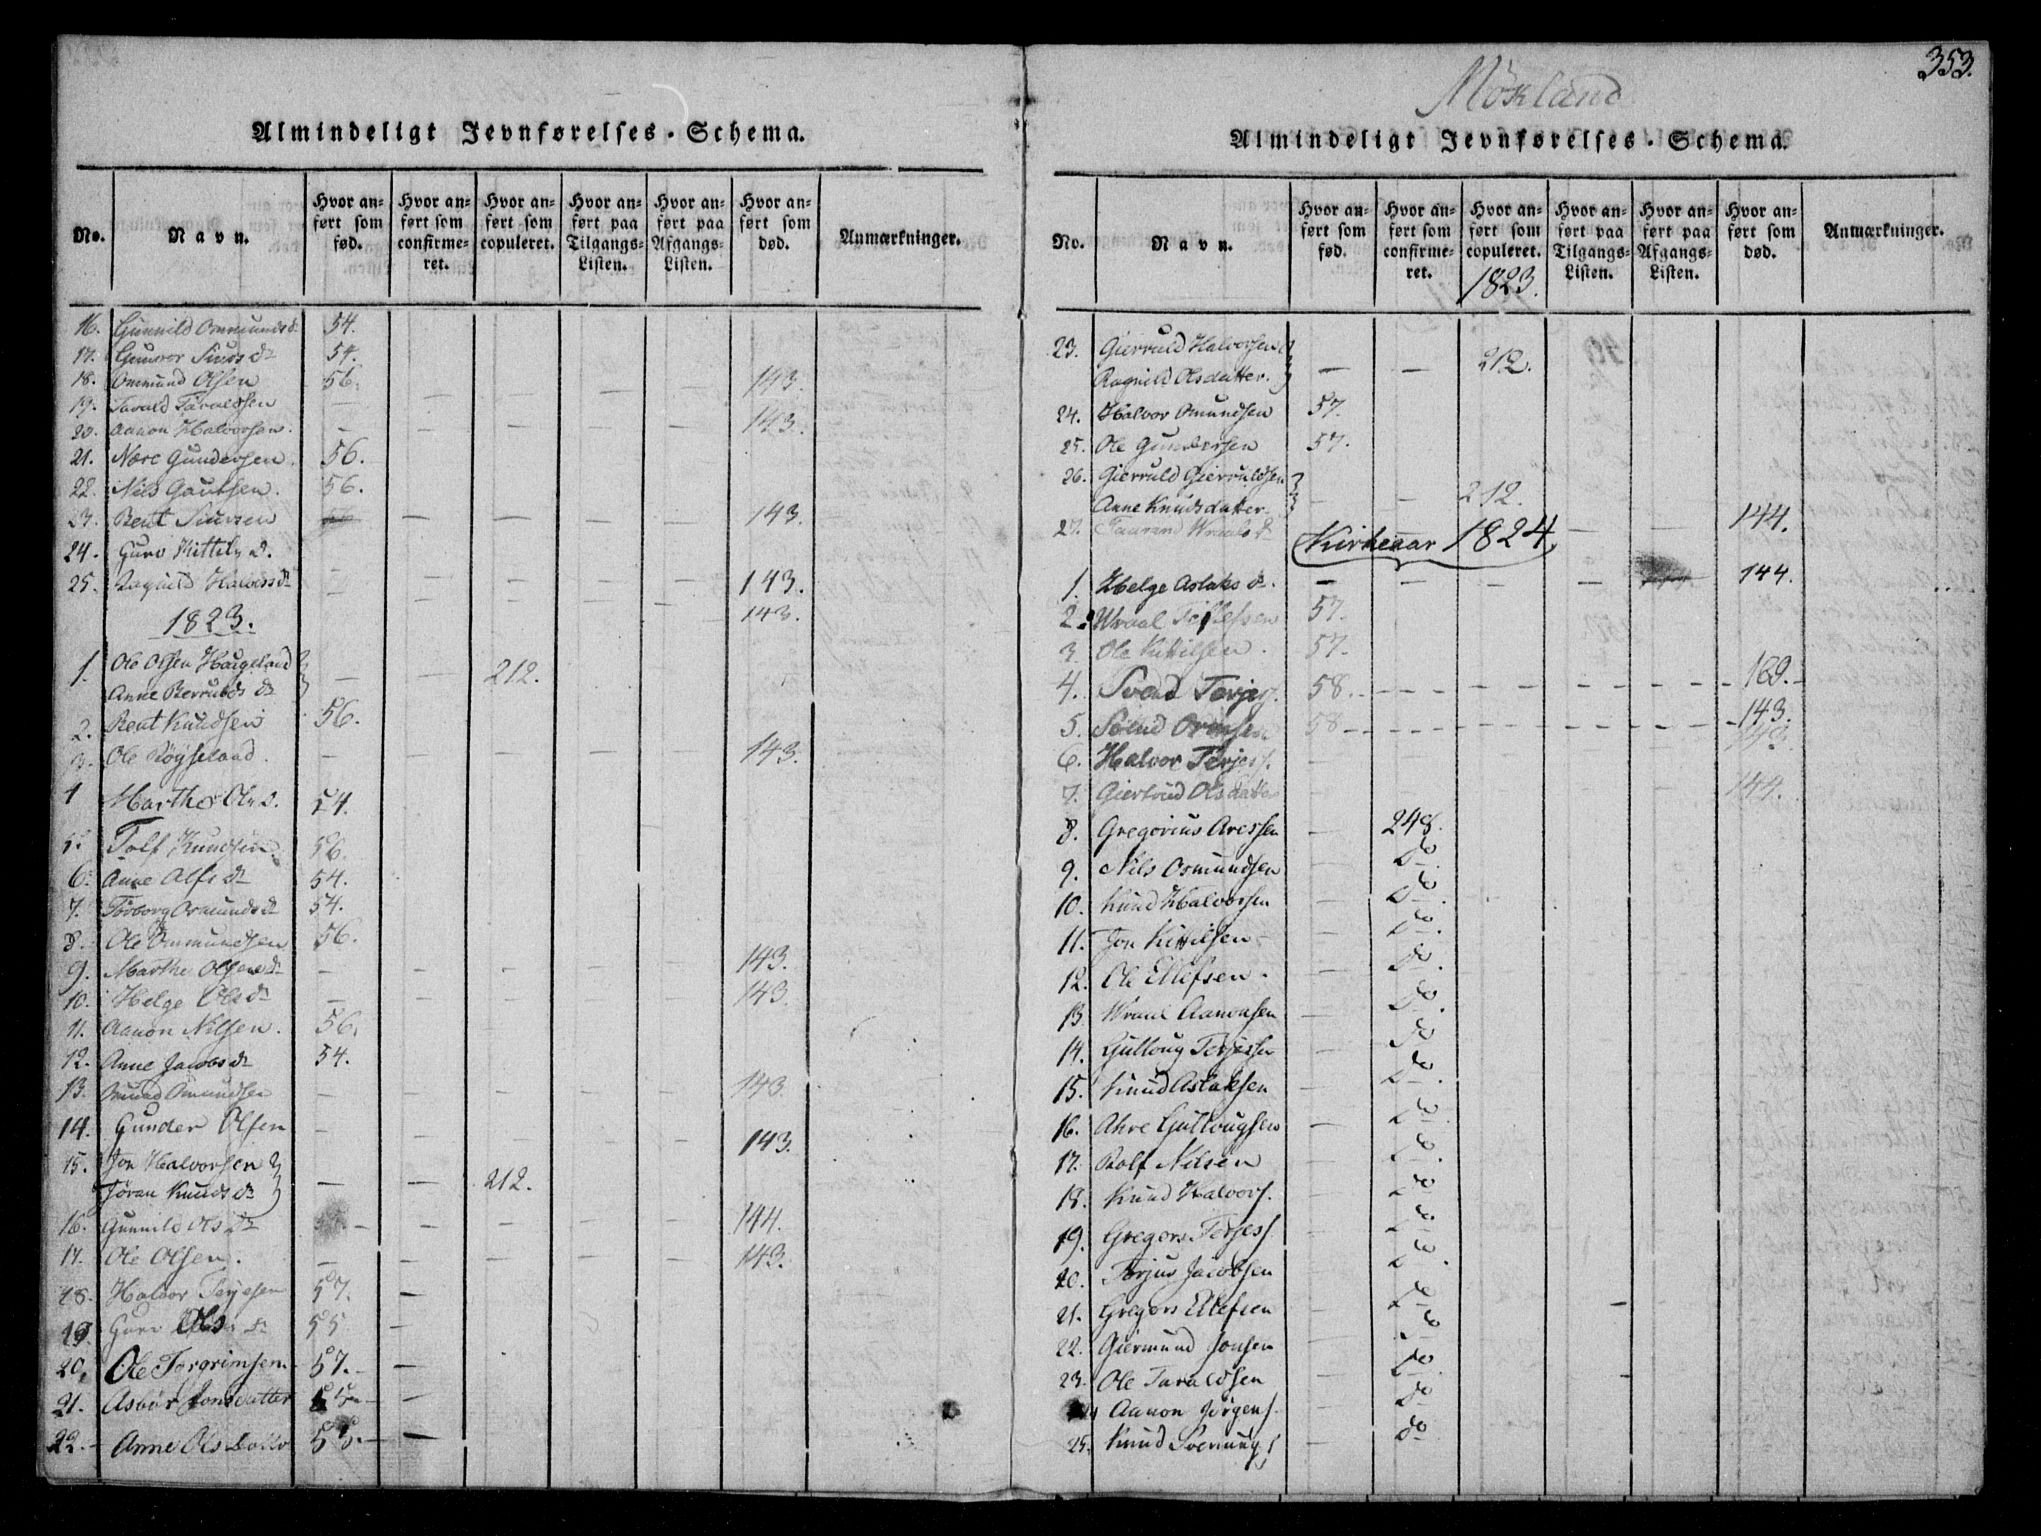 353.
Almindeligt Jevnførelses-Schema.
No.
Navn.
Hvor anført som fød.
Hvor anført som confirmeret.
Hvor anført som copuleret.
Hvor anført paa Tilgangs-Listen.
Hvor anført paa Afgangs-Listen.
Hvor anført som død.
Anmærkninger.
16. Gunnild Ommundsdr 54.
17. Gunvor Siursdr 54.
18. Ommund Olsen 56.
19. Tarald Taraldsen — — — — — 143.
20. Aanon Halvorsen. — — — — — 143.
21. Nære Gundersen. 56.
22. Nils Gautsen. 56.
23. Bent Siursen — — — — 143.
24. Guro Kittilsd.
25. Ragnild Halvorsdr — — — — — 143.
143.
1823.
1. Ole Olsen Haugeland
Anne Berruldsdr — — 212.
2. Bent Knudsen 56.
3. Ole Røyseland. — — — — 143.
4 Marthe Olsd. 54.
5. Tolf Knudsen. 56.
6. Anne Alfsdr 54.
7. Torborg Osmundsdr 54.
8. Ole Ommundsen 56.
9. Marthe Olsensdr — — — — — 143.
10. Helge Olsdr — — — — — 143.
11. Aanon Nilsen. 56.
12. Anne Jacobsdr 54.
13. Omund Omundsen — — — — — 143.
14. Gunder Olsen — — — — — 143.
15. Jon Halvorsen
Jøran Knudsdr — — 212.
16. Gunnild Olsdr — — — — — 144.
17. Ole Olsen. — — — — — 143.
18. Halvor Terjesen 57. —
19. Guro Olsdr 55 —
20. Ole Torgrimsen. 57. —
21. Asbør Jonsdatter 55. —
22. Anne Olsdatter 55. —
Mørland
Almindeligt Jevnførelses-Schema.
No.
Navn.
Hvor anført som fød.
Hvor anført som confirmeret.
Hvor anført som copuleret.
1823.
Hvor anført paa Tilgangs-Listen.
Hvor anført paa Afgangs-Listen.
Hvor anført som død.
Anmærkninger.
23. Gierruld Halvorsen
Ragnild Olsdatter. — — 212.
24. Halvor Omundsen 57.
25. Ole Gundersen 57.
26. Gierruld Gierruldsen
Anne Knudsdatter. — — 212.
27. Wraalsd — — 144.
Kirkeaar 1824
1. Helge Aslaksdr. — — — — 144.
2. Wraal Tollefsen 57.
3. Ole Kittilsen. 57.
4. Svend Terjes. 58. — 169.
5. Svend 58 — 143.
6. Halvor Terjess.
7. Giertrud Olsdatter 144.
8. Gregorius Aressen — 248.
9. Nils Osmundsen — do.
10. Knud Halvorsen — do.
11. Jon Kittilsen — do.
12. Ole Ellefsen. — do.
13 Wraal Aanonsen — do.
14. Gulloug Terjessen — do.
15. Knud Aslaksen — do.
16. Ahre Gullougsen — do.
17. Rolf Nilsen do.
18. Knud Halvors. do.
19. Gregers Terjess. do.
20. Torjus Jacobsen do.
21. Gregers Ellefsen — do.
22. Giermund Jonsen do.
23. Ole Taraldsen do.
Aanon Jørgens. do.
25. Knud Svenungs. — do